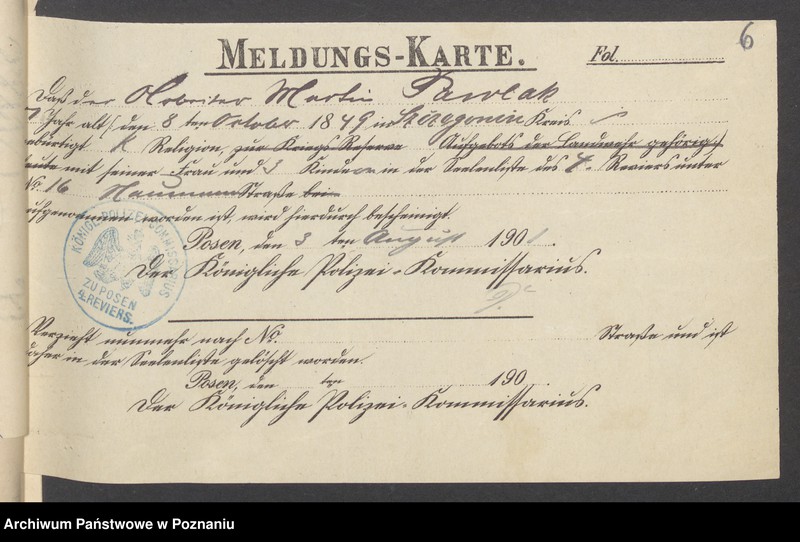 6
MELDUNGS-KARTE. Fol.
Daß der Arbeiter Martin Pawlak
Jahr alt, den 8 ten October 1849 in Kreis
gebürtigt K Religion, zur Kriegs-Reserve Aufgebots der Landwehr gehörig,
heute mit seiner Frau und 3 Kindern in der Seelenliste des 4. Reviers unter
No. 16 Naumann Straße bei
aufgenommen worden ist, wird hierdurch bescheinigt.
Posen, den 3 ten August 1901.
Der Königliche Polizei-Kommissarius.
KÖNIGL. POLIZEI-COMMISSARIUS
ZU POSEN
4. REVIERS.
Verzieht nunmehr nach No. Straße und ist
daher in der Seelenliste gelöscht worden.
Posen, den ten 190
Der Königliche Polizei-Kommissarius.
Archiwum Państwowe w Poznaniu